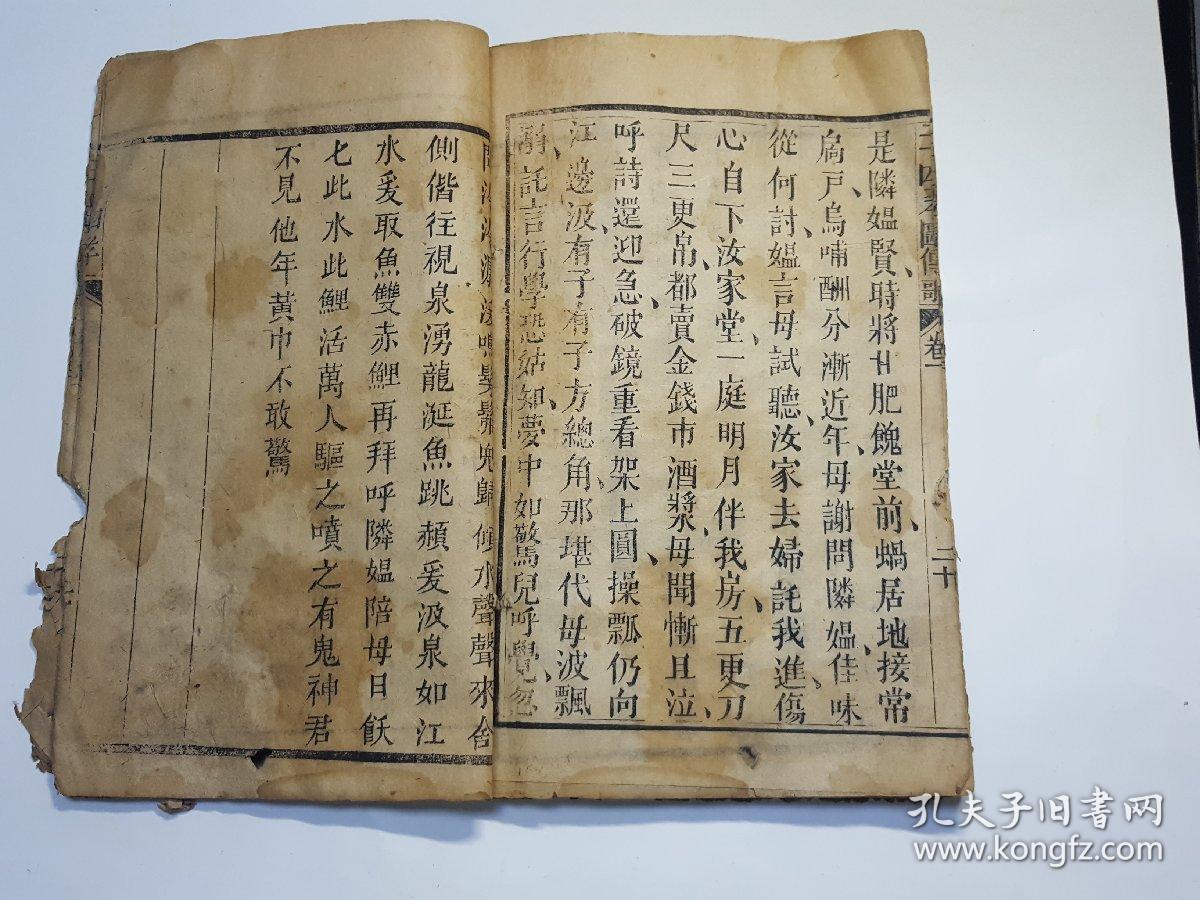 二十四孝圖傳歌 卷一
二十
是隣媼賢時將甘肥餽堂前蝸居地接常
扃戸烏哺酬分漸近年母謝問隣媼佳味
從何討媼言母試聽汝家去婦託我進傷
心自下汝家堂一庭明月伴我房五更刀
尺三更帛都賣金錢市酒漿母聞慚且泣
呼詩還迎急破鏡重看架上圓操瓢仍向
江邊汲有子有子方總角那堪代母波飄
託言行學恐姑知夢中如驚兒呼覺忽
歸傾水聲聲來舍
側偕往視泉湧龍涎魚跳頳爰汲泉如江
水爰取魚雙赤鯉再拜呼隣媼陪母日飫
七此水此鯉活萬人驅之噴之有鬼神君
不見他年黃巾不敢驚
孔夫子旧书网
www.kongfz.com